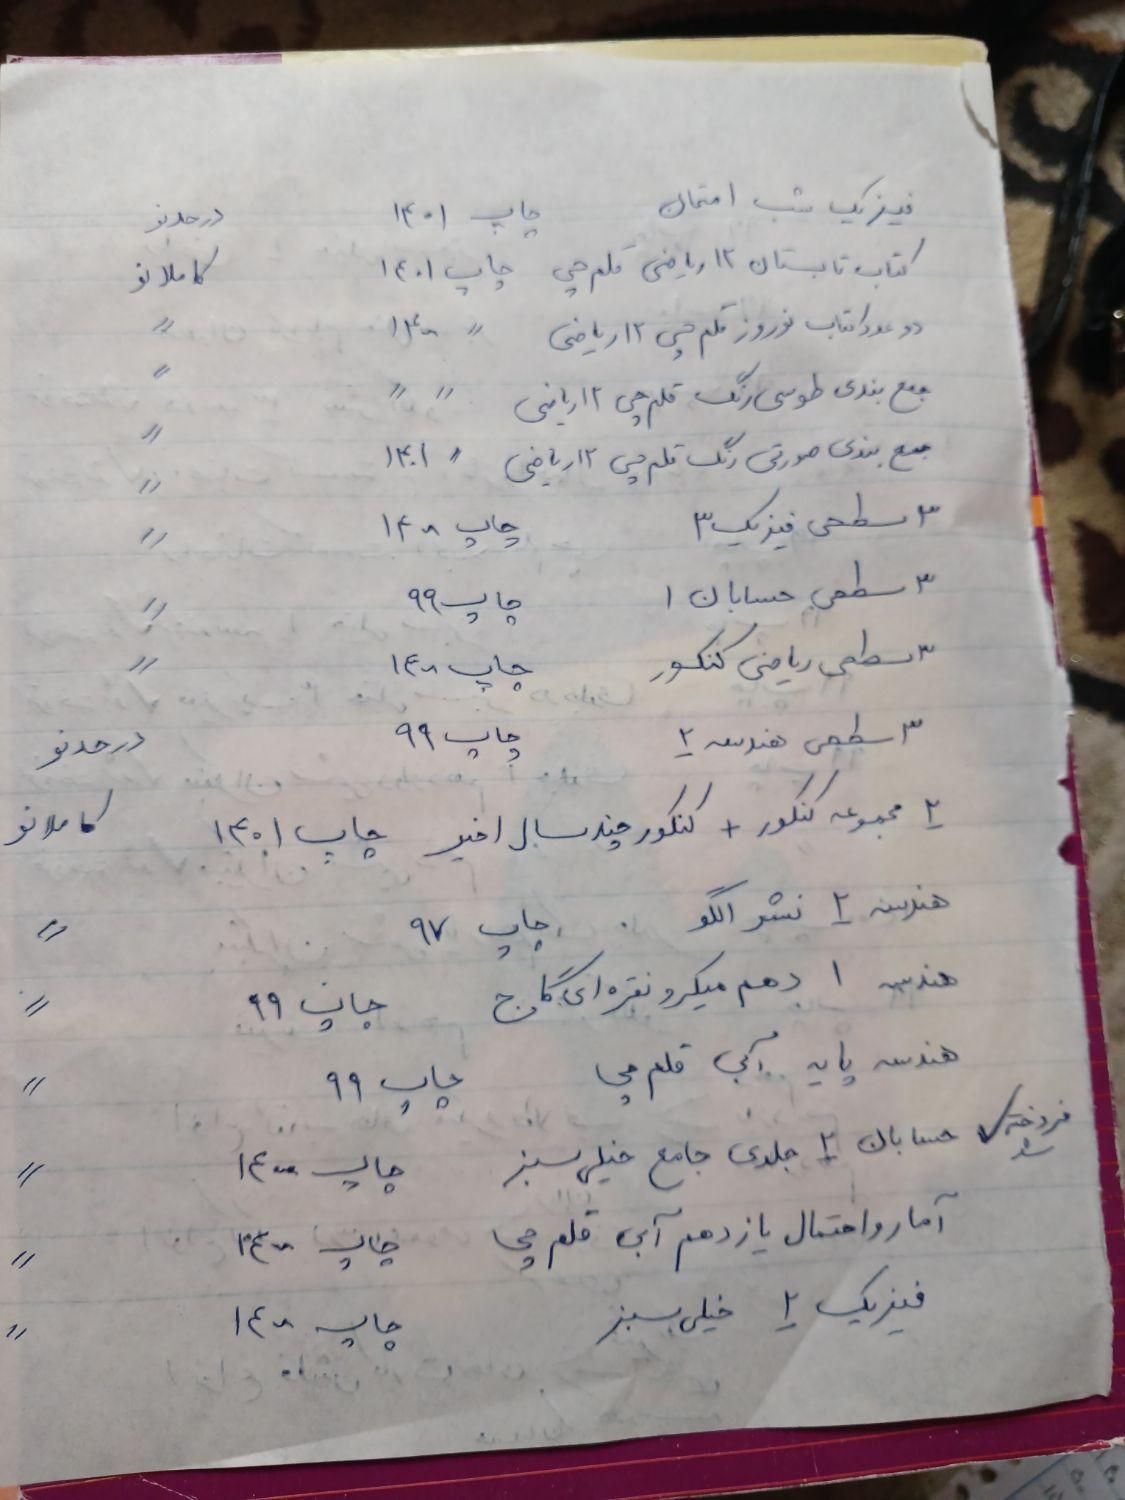 فیزیک شب امتحان چاپ ۱۴۰۱ در حد نو
کتاب تابستان ۱۲ ریاضی قلم چی چاپ ۱۴۰۱ کاملا نو
دو عدد کتاب نوروز قلم چی ۱۲ ریاضی 〃 ۱۴۰۰ 〃
جمع بندی طوسی رنگ قلم چی ۱۲ ریاضی 〃 〃 〃
جمع بندی صورتی رنگ قلم چی ۱۲ ریاضی 〃 ۱۴۰۱ 〃
۳ سطحی فیزیک ۳ چاپ ۱۴۰۰ 〃
〃
۳ سطحی حسابان ۱ چاپ ۹۹ 〃
۳ سطحی ریاضی کنکور چاپ ۱۴۰۰ 〃
۳ سطحی هندسه ۲ چاپ ۹۹ در حد نو
۲ مجموعه کنکور + کنکور چند سال اخیر چاپ ۱۴۰۱ کاملا نو
هندسه ۲ نشر الگو چاپ ۹۷ 〃
هندسه ۱ دهم میکرو نقره ای گاج چاپ ۹۹ 〃
هندسه پایه آبی قلم چی چاپ ۹۹ 〃
فروخته شد ✓ حسابان ۲ جلدی جامع خیلی سبز چاپ ۱۴۰۰ 〃
آمار و احتمال یازدهم آبی قلم چی چاپ ۱۴۰۰ 〃
فیزیک ۲ خیلی سبز چاپ ۱۴۰۰ 〃